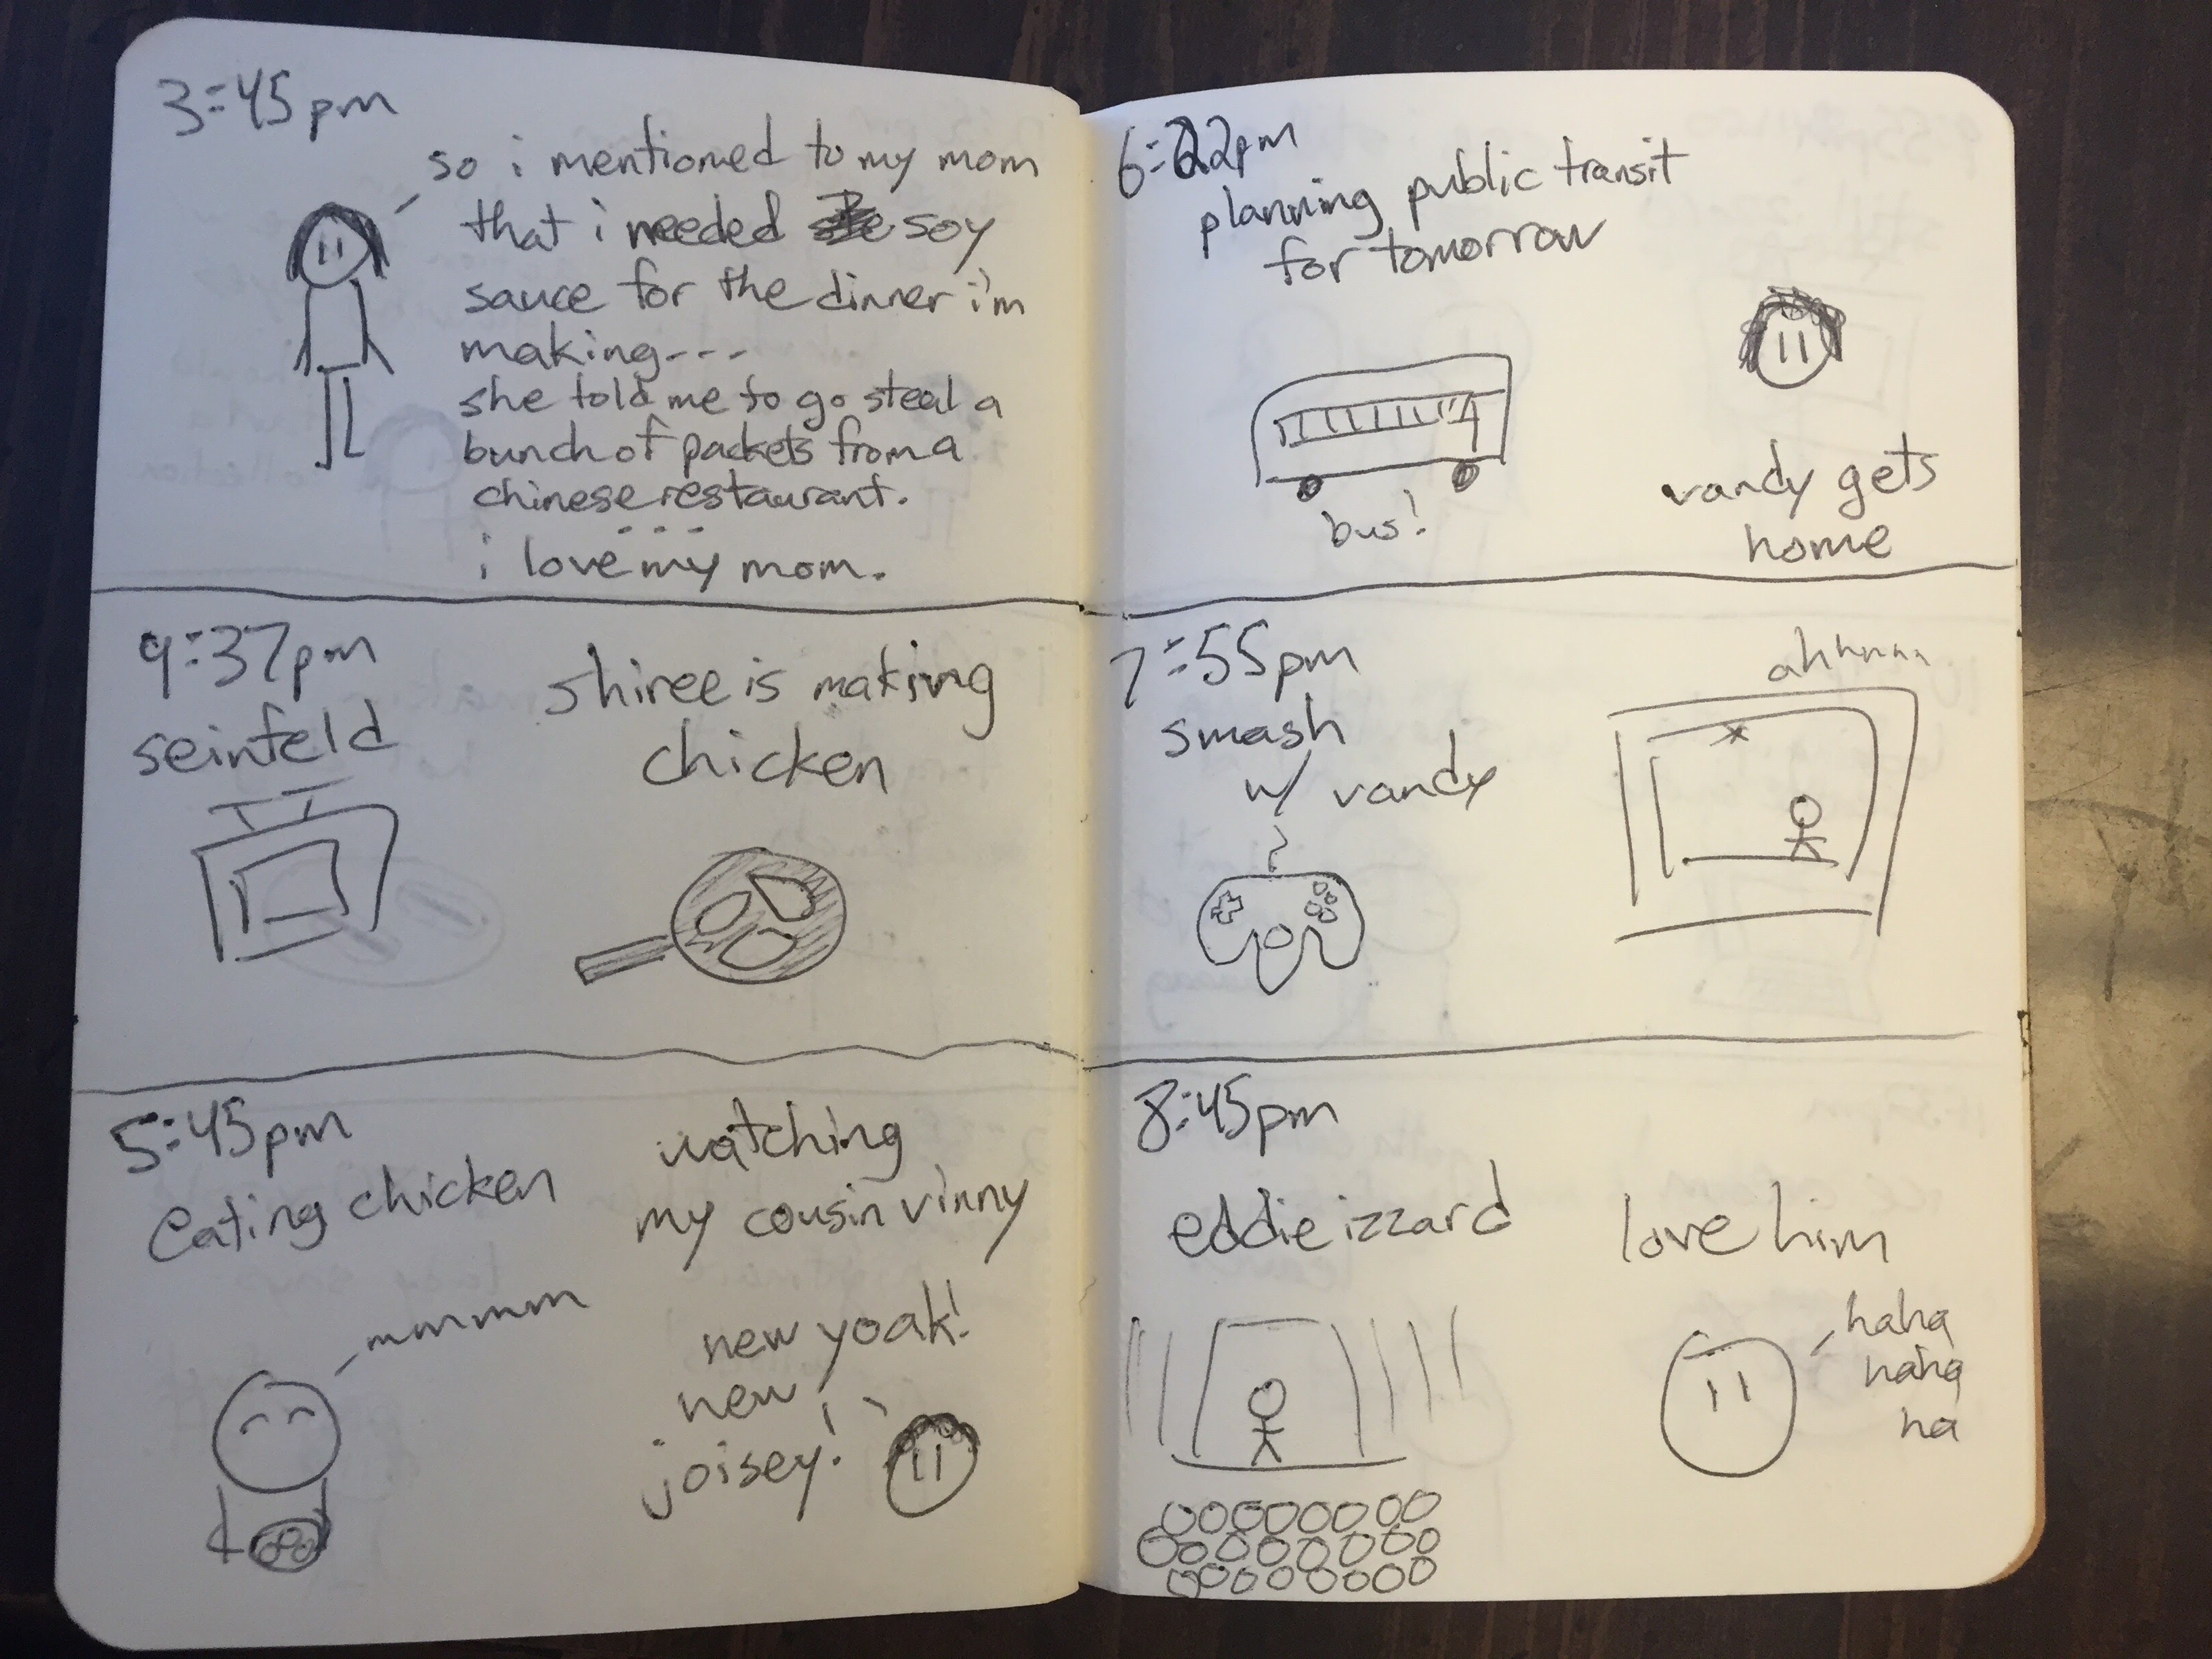 3:45pm
so i mentioned to my mom
that i needed soy
sauce for the dinner i'm
making---
she told me to go steal a
bunch of packets from a
chinese restaurant.
...
i love my mom.
4:37pm
seinfeld
shiree is making
chicken
5:45pm
eating chicken
mmmmm
watching
my cousin vinny
new yoak!
new
joisey!
6:22pm
planning public transit
for tomorrow
bus!
vandy gets
home
7:55pm
smash
w/ vandy
ahhhhhh
8:45pm
eddie izzard
love him
haha
haha
ha